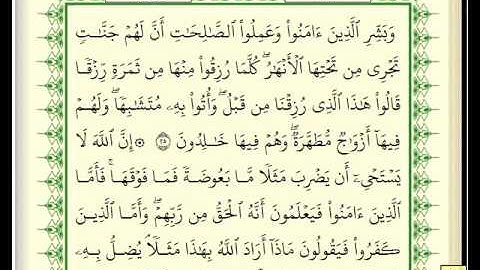 وَبَشِّرِ ٱلَّذِينَ ءَامَنُوا۟ وَعَمِلُوا۟ ٱلصَّـٰلِحَـٰتِ أَنَّ لَهُمْ جَنَّـٰتٍ
تَجْرِى مِن تَحْتِهَا ٱلْأَنْهَـٰرُ ۖ كُلَّمَا رُزِقُوا۟ مِنْهَا مِن ثَمَرَةٍ رِّزْقًا
قَالُوا۟ هَـٰذَا ٱلَّذِى رُزِقْنَا مِن قَبْلُ ۖ وَأُتُوا۟ بِهِۦ مُتَشَـٰبِهًا ۖ وَلَهُمْ
فِيهَآ أَزْوَٰجٌ مُّطَهَّرَةٌ ۖ وَهُمْ فِيهَا خَـٰلِدُونَ ٢٥ ۞ إِنَّ ٱللَّهَ لَا
يَسْتَحْىِۦٓ أَن يَضْرِبَ مَثَلًا مَّا بَعُوضَةً فَمَا فَوْقَهَا ۚ فَأَمَّا
ٱلَّذِينَ ءَامَنُوا۟ فَيَعْلَمُونَ أَنَّهُ ٱلْحَقُّ مِن رَّبِّهِمْ ۖ وَأَمَّا ٱلَّذِينَ
كَفَرُوا۟ فَيَقُولُونَ مَاذَآ أَرَادَ ٱللَّهُ بِهَـٰذَا مَثَلًا ۘ يُضِلُّ بِهِۦ